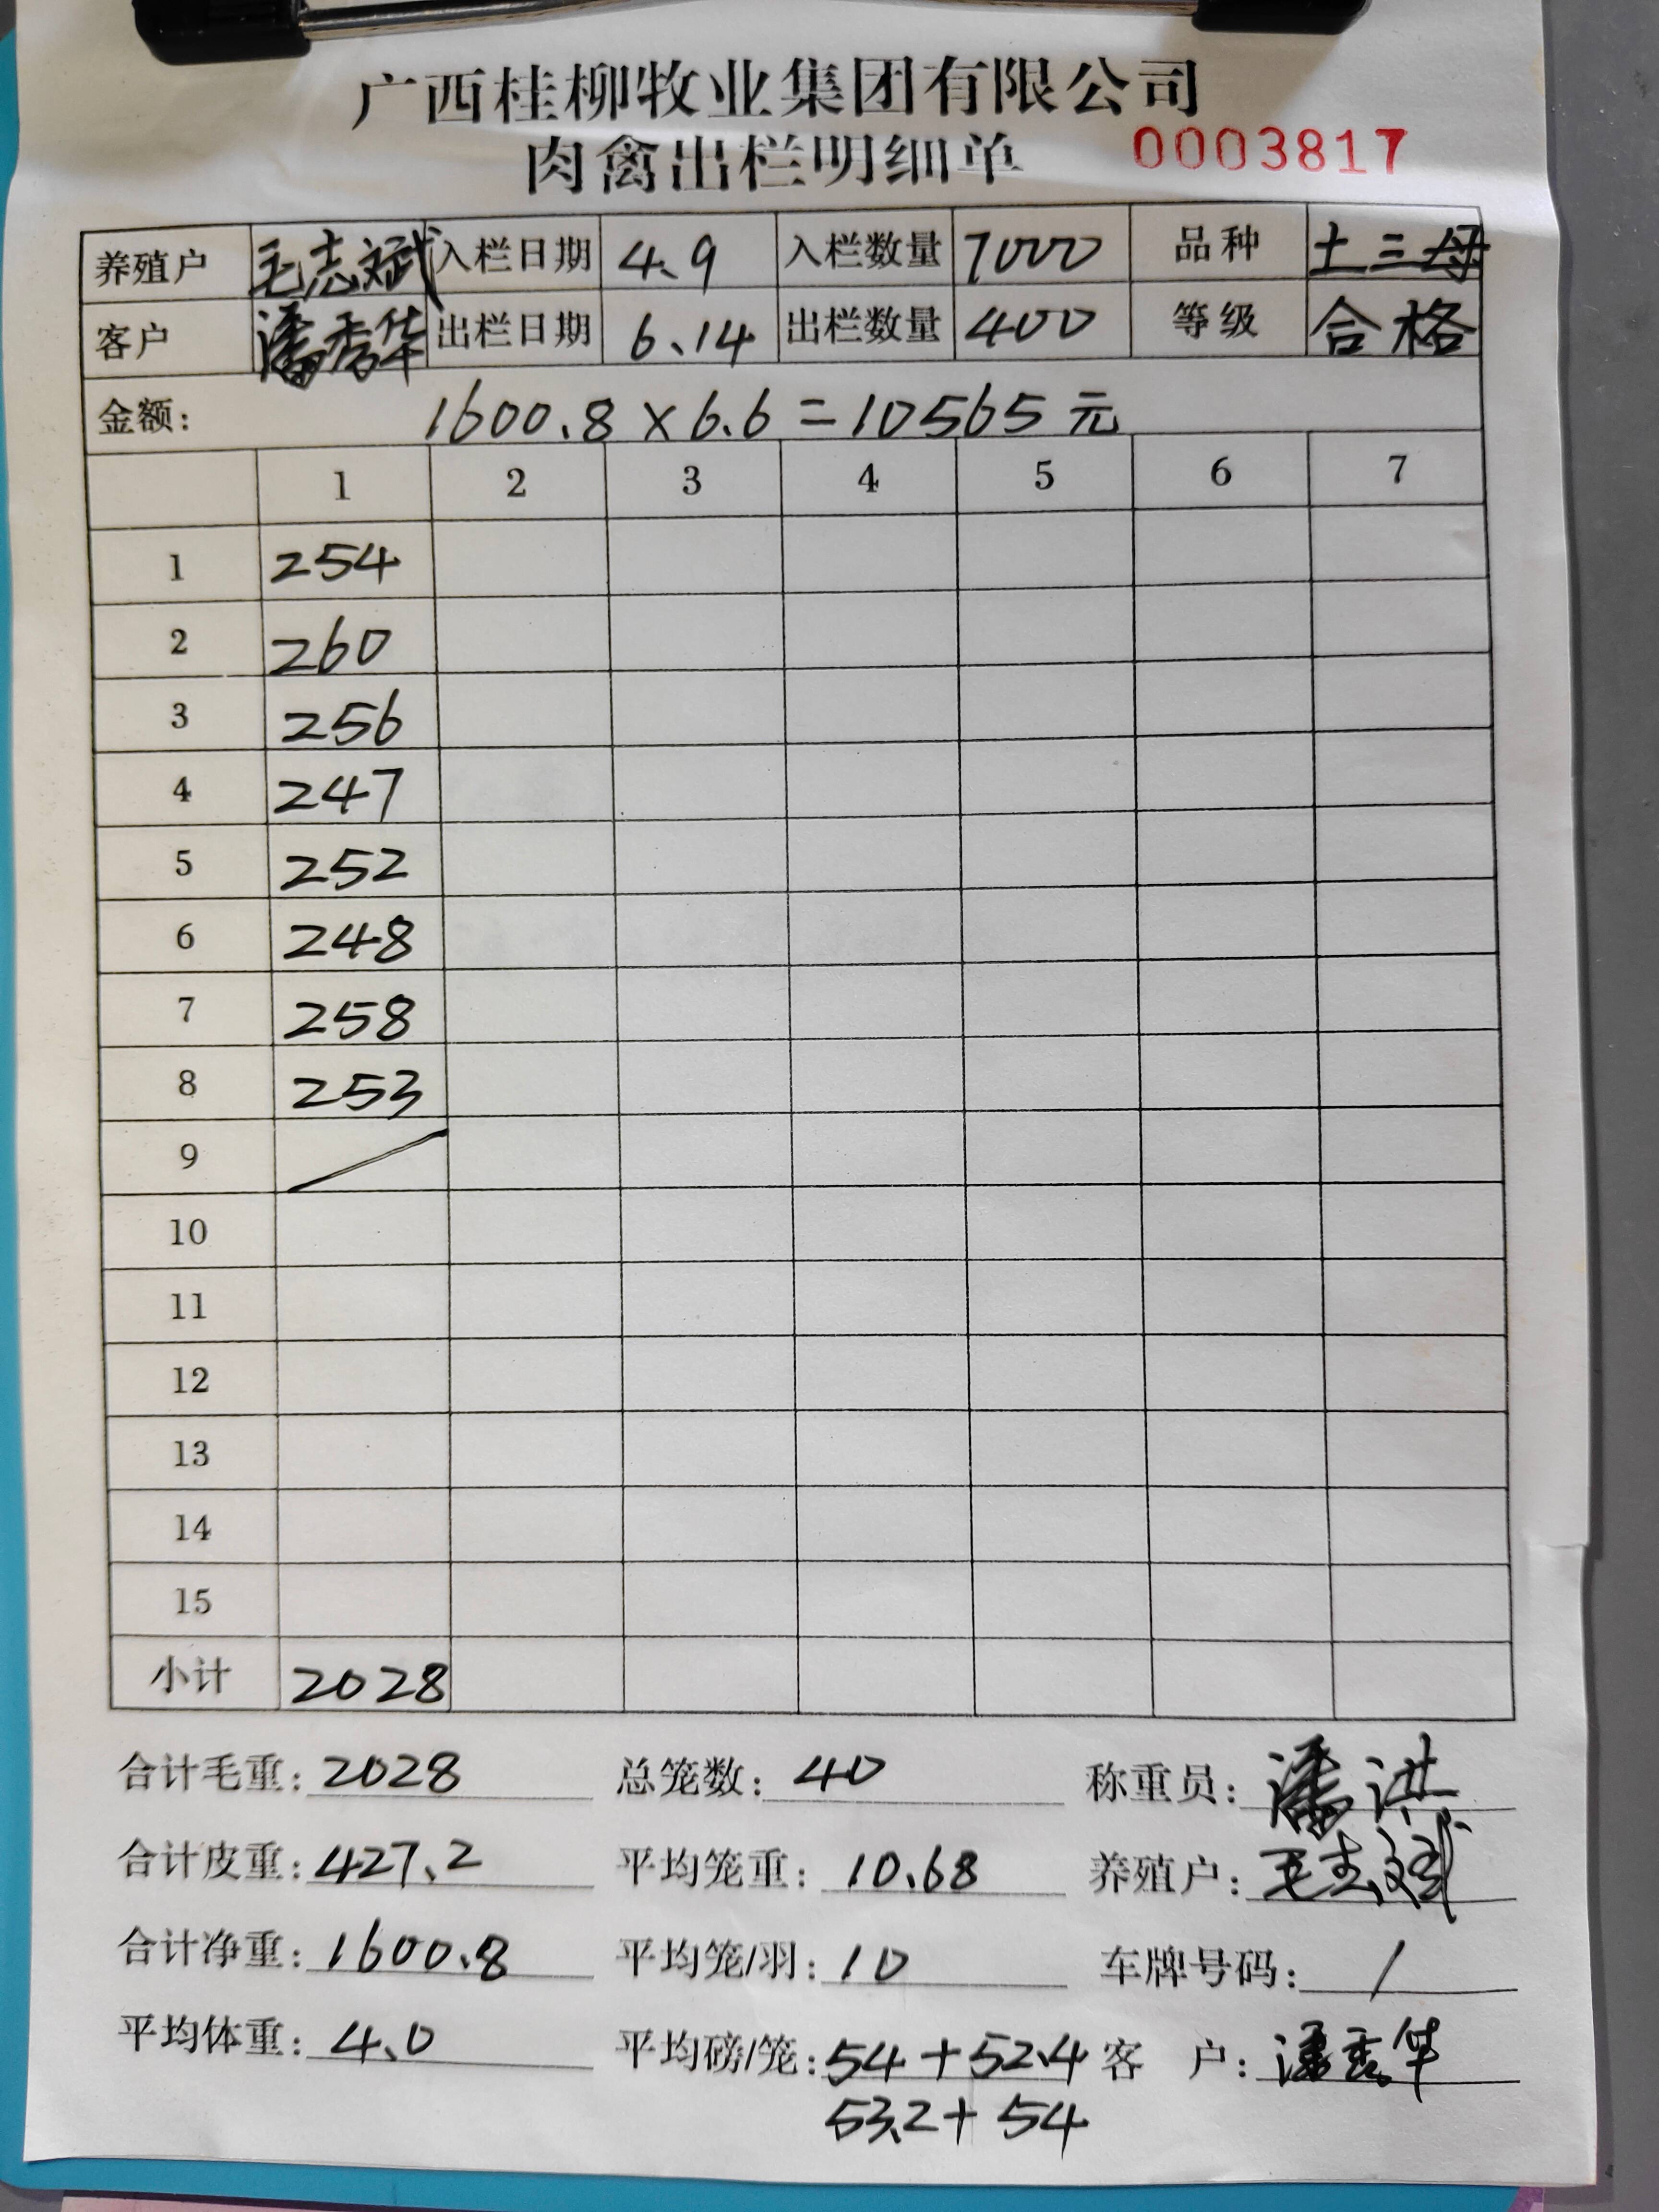 广西桂柳牧业集团有限公司
肉禽出栏明细单 0003817
养殖户 毛志斌 入栏日期 4.9 入栏数量 7000 品种 土三母
客户 潘秀华 出栏日期 6.14 出栏数量 400 等级 合格
金额: 1600.8×6.6=10565元
1 2 3 4 5 6 7
1 254
2 260
3 256
4 247
5 252
6 248
7 258
8 253
9 /
10
11
12
13
14
15
小计 2028
合计毛重: 2028 总笼数: 40 称重员: 潘洪
合计皮重: 427.2 平均笼重: 10.68 养殖户: 毛志斌
合计净重: 1600.8 平均笼/羽: 10 车牌号码: /
平均体重: 4.0 平均磅/笼: 54+52.4 客 户: 潘秀华
53.2+54